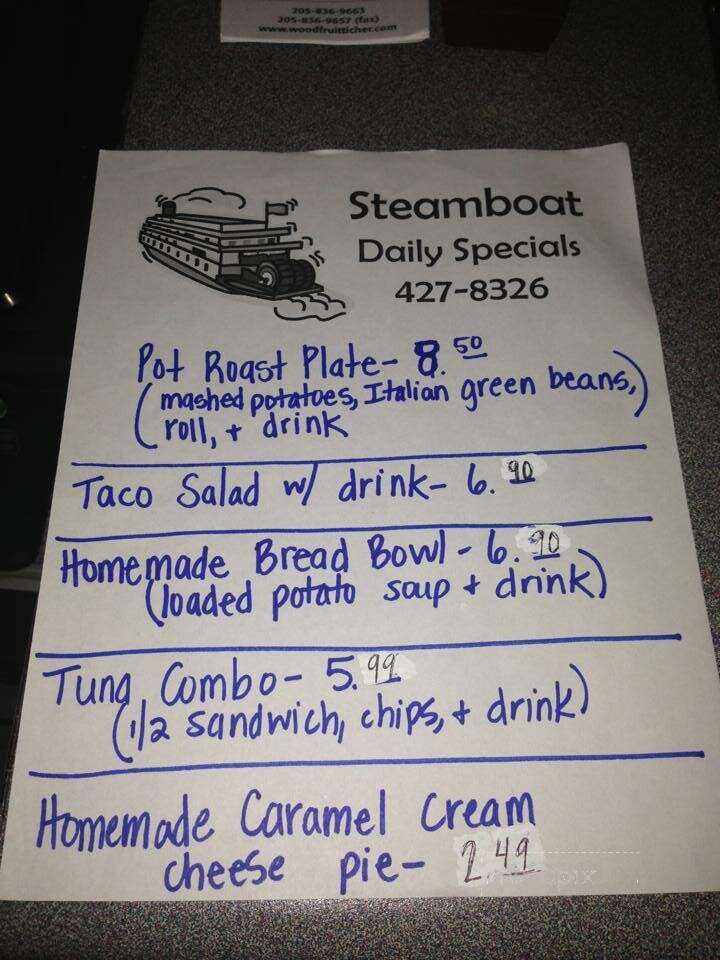 205-836-9663
205-836-9657 (fax)
www.woodfruitticher.com
Steamboat
Daily Specials
427-8326
Pot Roast Plate- 8.50
(mashed potatoes, Italian green beans,
roll, + drink)
Taco Salad w/ drink- 6.90
Homemade Bread Bowl - 6.90
(loaded potato soup + drink)
Tuna Combo- 5.99
(1/2 sandwich, chips, + drink)
Homemade Caramel Cream
cheese pie- 2.49